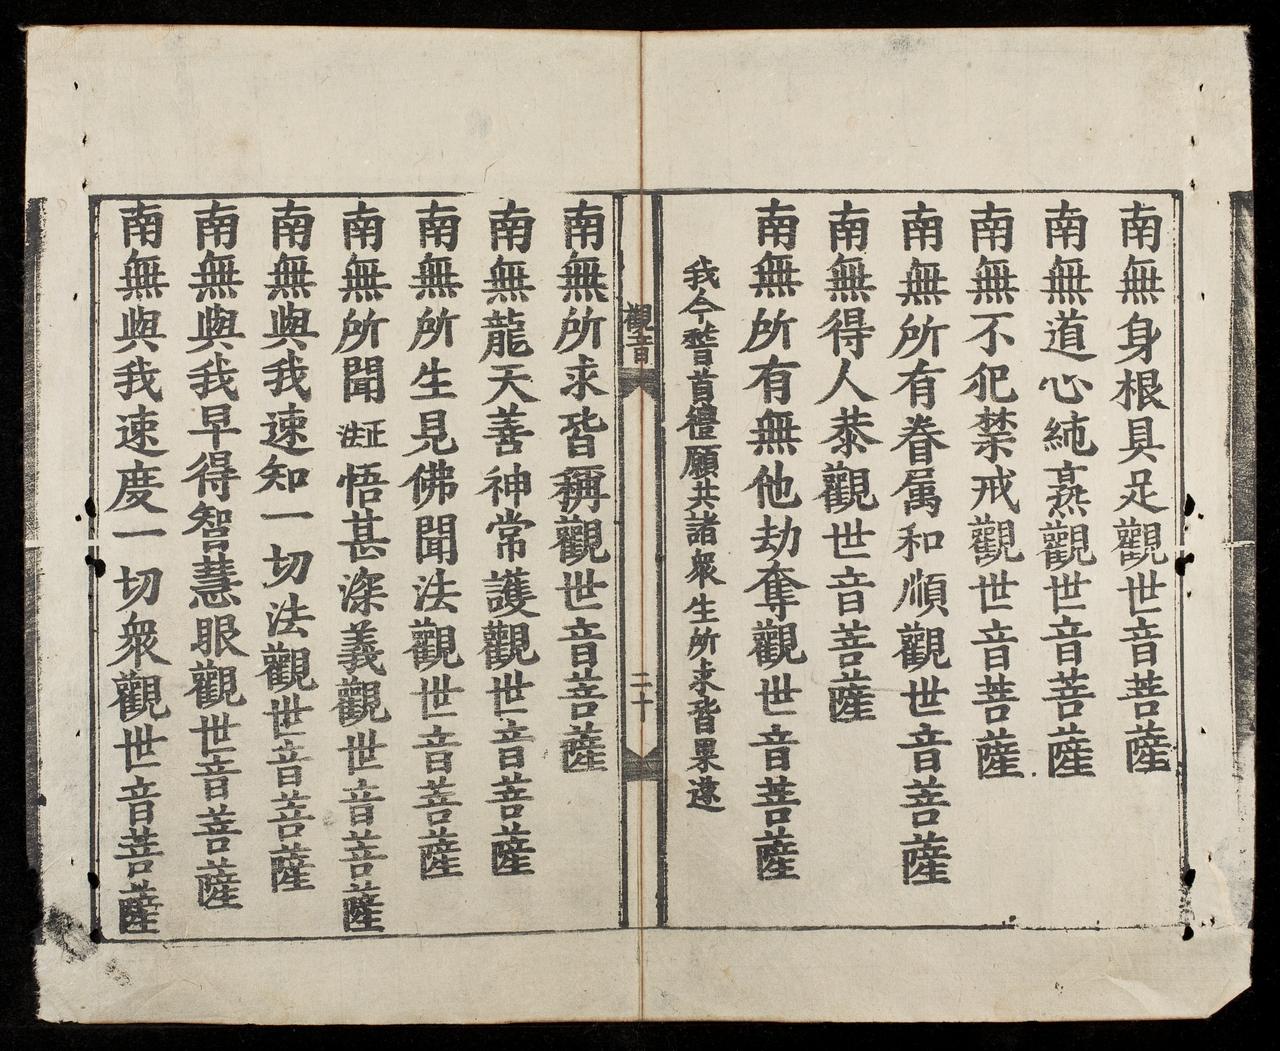 南無身根具足觀世音菩薩
南無道心純熟觀世音菩薩
南無不犯禁戒觀世音菩薩
南無所有眷属和順觀世音菩薩
南無得人恭觀世音菩薩
南無所有無他劫奪觀世音菩薩
我今䭫首禮願共諸衆生所求皆果遂
觀音
二十
南無所求皆稱觀世音菩薩
南無龍天善神常護觀世音菩薩
南無所生見佛聞法觀世音菩薩
南無所聞正法悟甚深義觀世音菩薩
南無與我速知一切法觀世音菩薩
南無與我早得智慧眼觀世音菩薩
南無與我速度一切衆觀世音菩薩